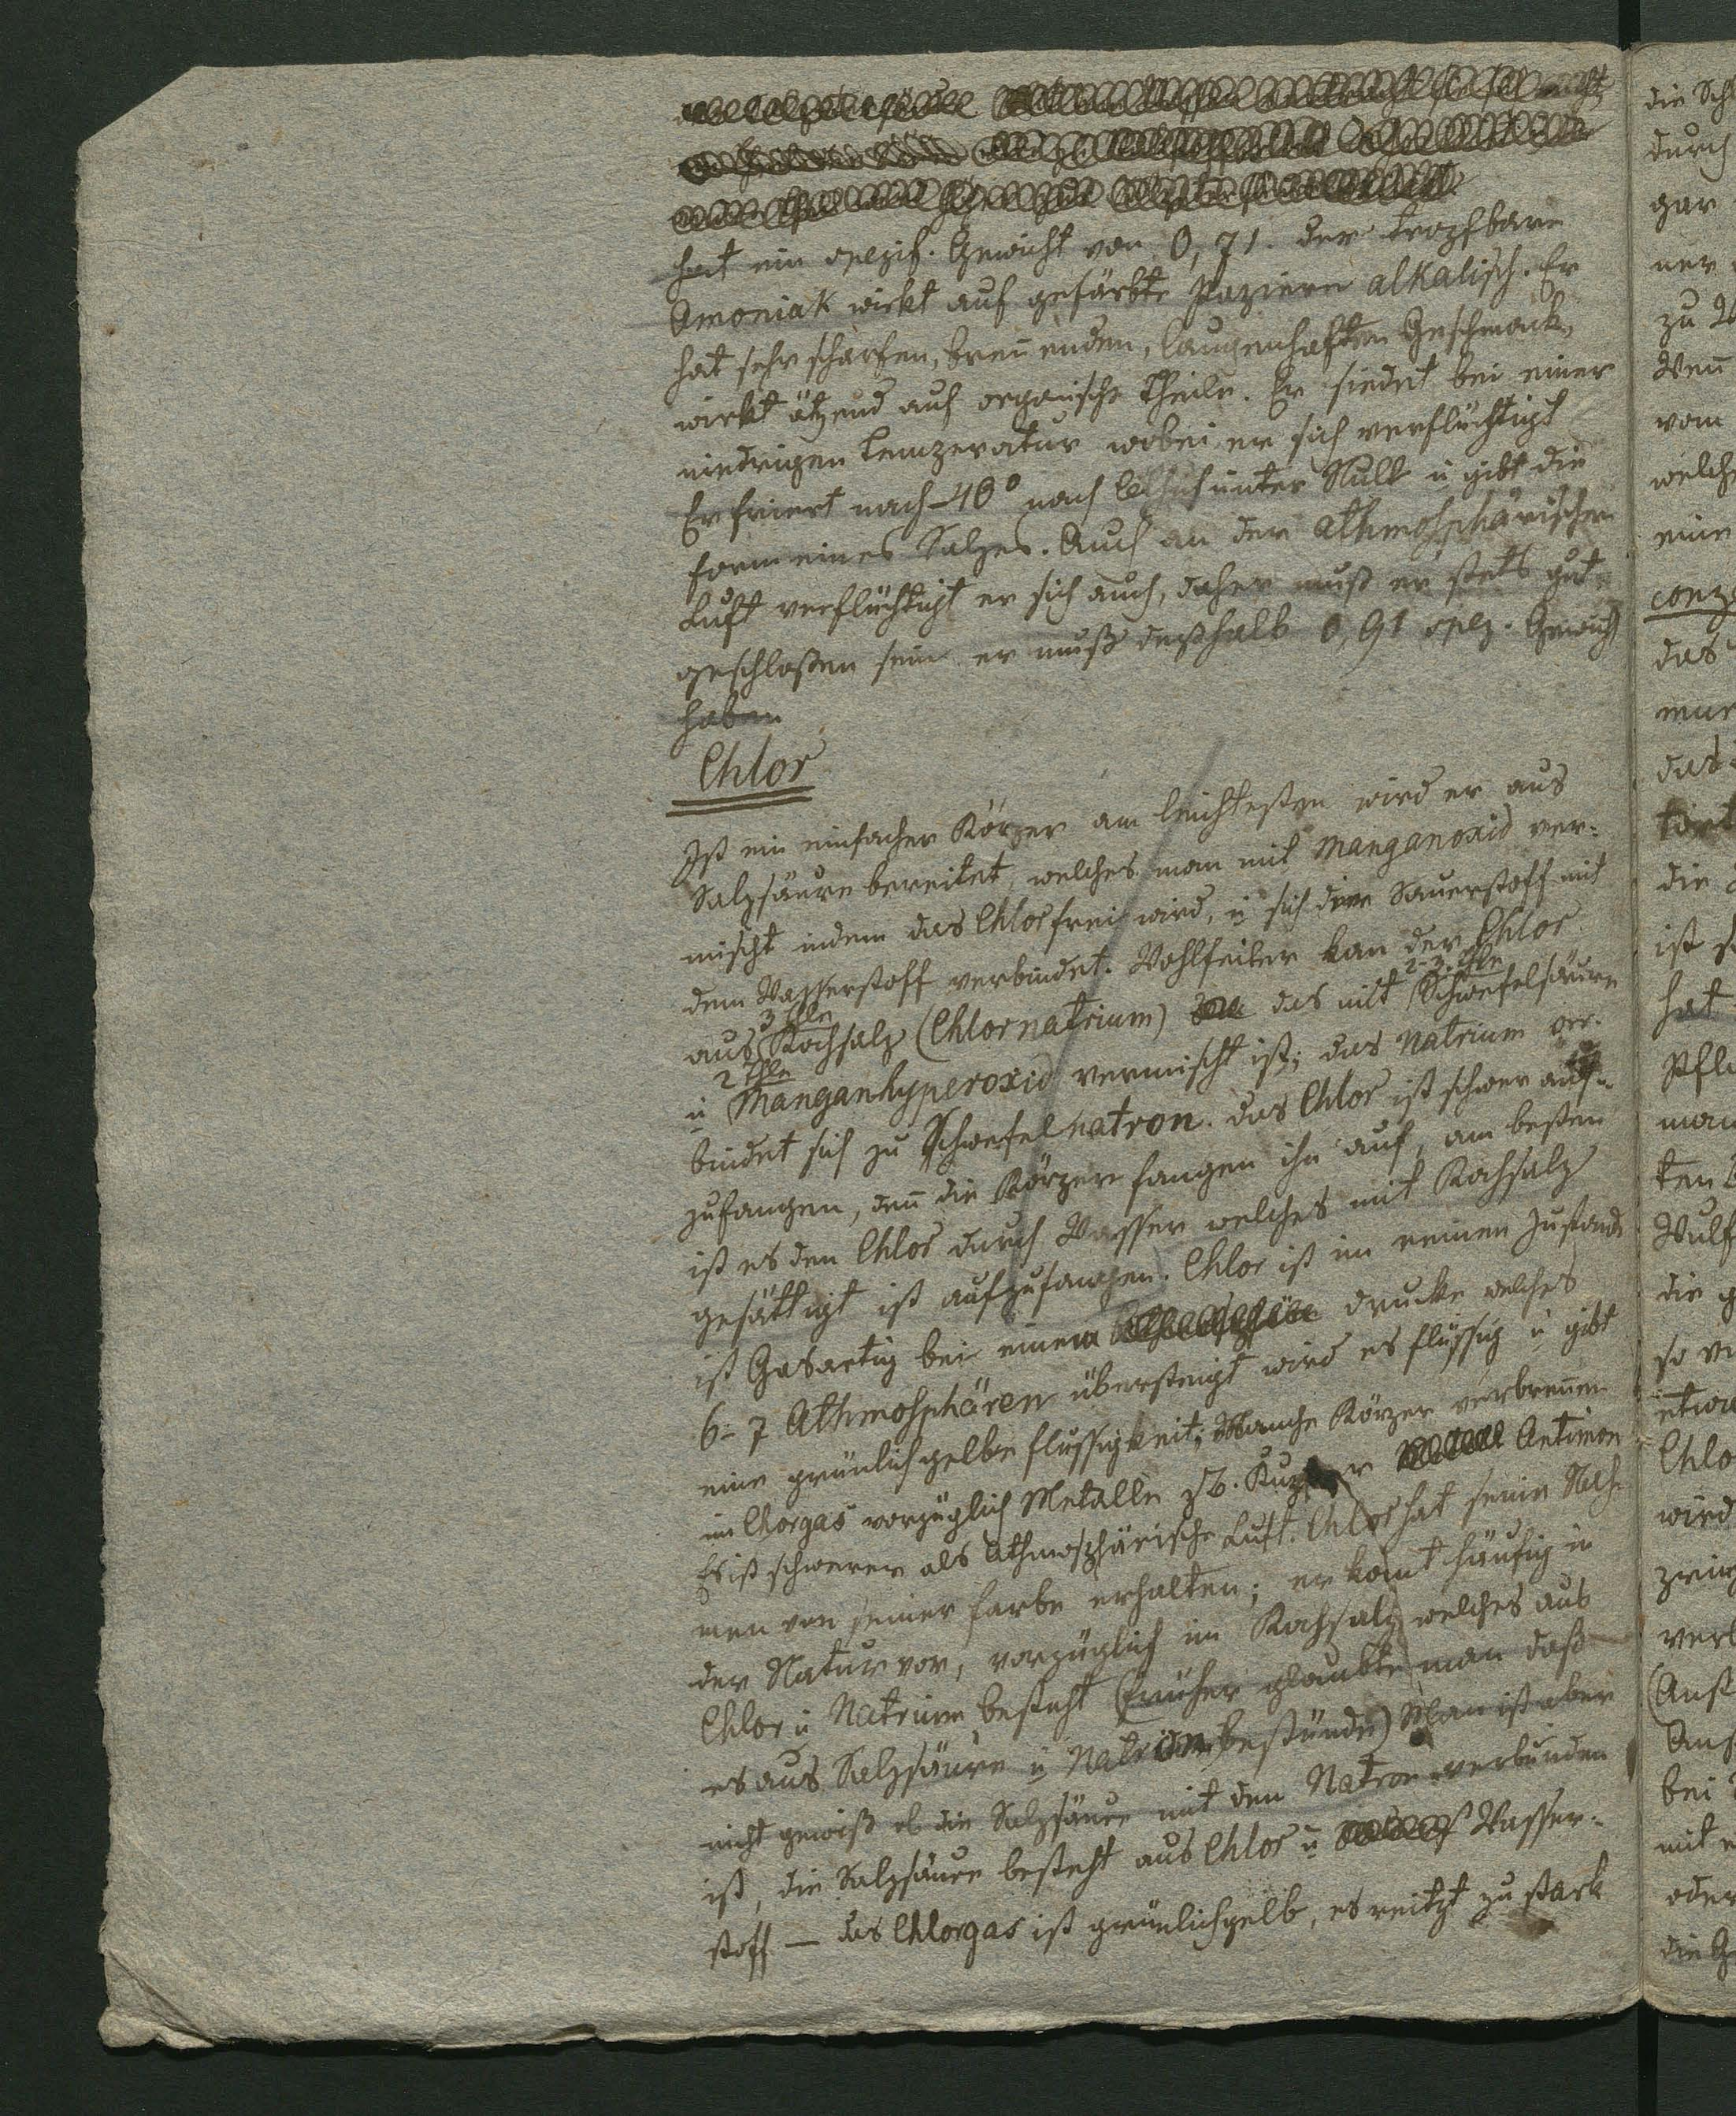 hat ein spezif. Gewicht von 0,71. der tropfbare
Amoniak wirkt auf gefärbte Papiere alkalisch. Er
hat sehr scharfen, breñenden, laugenhaften Geschmack,
wirkt ätzend auf organische Theile. Er siedet bei einer
niedrigen Temperatur wobei er sich verflüchtigt
Er friert nach -40° nach unter Null u gibt die
Form eines Salzes. Auch an der athmosphärischen
Luft verflüchtigt er sich auch, daher muß er stets gut
geschloßen sein er muß deßhalb 0,91 spez. Gewicht
haben
Chlor
Ist ein einfacher Körper am leichtesten wird er aus
Salzsäure bereitet, welches man mit Manganoxid ver-
mischt indem das Chlor frei wird, u sich der Sauerstoff mit
dem Wasserstoff verbindet. Wohlfeiler kan der Chlor
3 Thle 2-3. Thle
aus Kochsalz (Chlornatrium) das mit Schwefelsäure
2 Thle
u Manganhyperoxid vermischt ist; das Natrium ver-
bindet sich zu Schwefelnatron. das Chlor ist schwer auf-
zufangen, deñ die Körper fangen ihn auf, am besten
ist es den Chlor durch Wasser welches mit Kochsalz
gesättigt ist aufzufangen. Chlor ist im reinen Zustande
ist Gasartig bei einem drucke welches
6-7 Athmosphären übersteigt wird es flüssig u gibt
eine grünlichgelbe flüssigkeit; Manche Körper verbreñen
im Chorgas vorzüglich Metalle zB. Kupfer Antimon
Es ist schwerer als Athmosphärische Luft. Chlor hat seine Nah-
men von seiner farbe erhalten; er komt häufig in
der Natur vor, vorzüglich im Kochsalz welches aus
Chlor u Natrium besteht (früher glaubte man daß
es aus Salzsäure u Natrium bestünde) Man ist aber
nicht gewiß ob die Salzsäure mit den Natron verbunden
ist, die Salzsäure besteht aus Chlor u Wasser-
stoff — das Chlorgas ist grünlichgelb, es reitzt zu stark
die
durch
gar
zu
Weñ
vom
eine
das
die
ist
hat